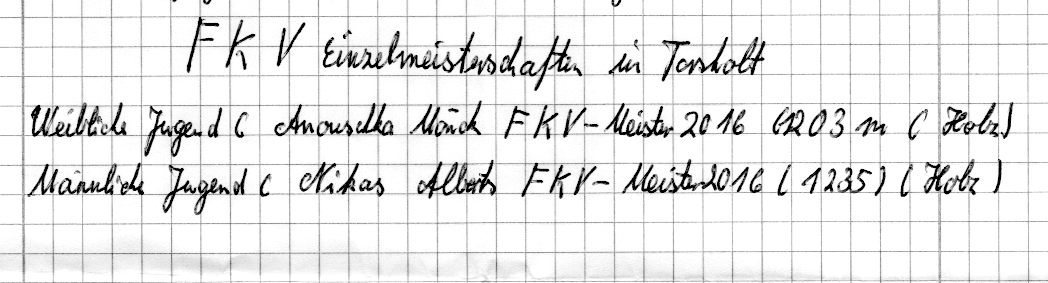 FKV Einzelmeisterschaften in Torsholt
Weibliche Jugend C Anouschka Mönck FKV-Meister 2016 (1203 m ( Holz)
Männliche Jugend C Nikas Alberts FKV-Meister 2016 (1235) (Holz)